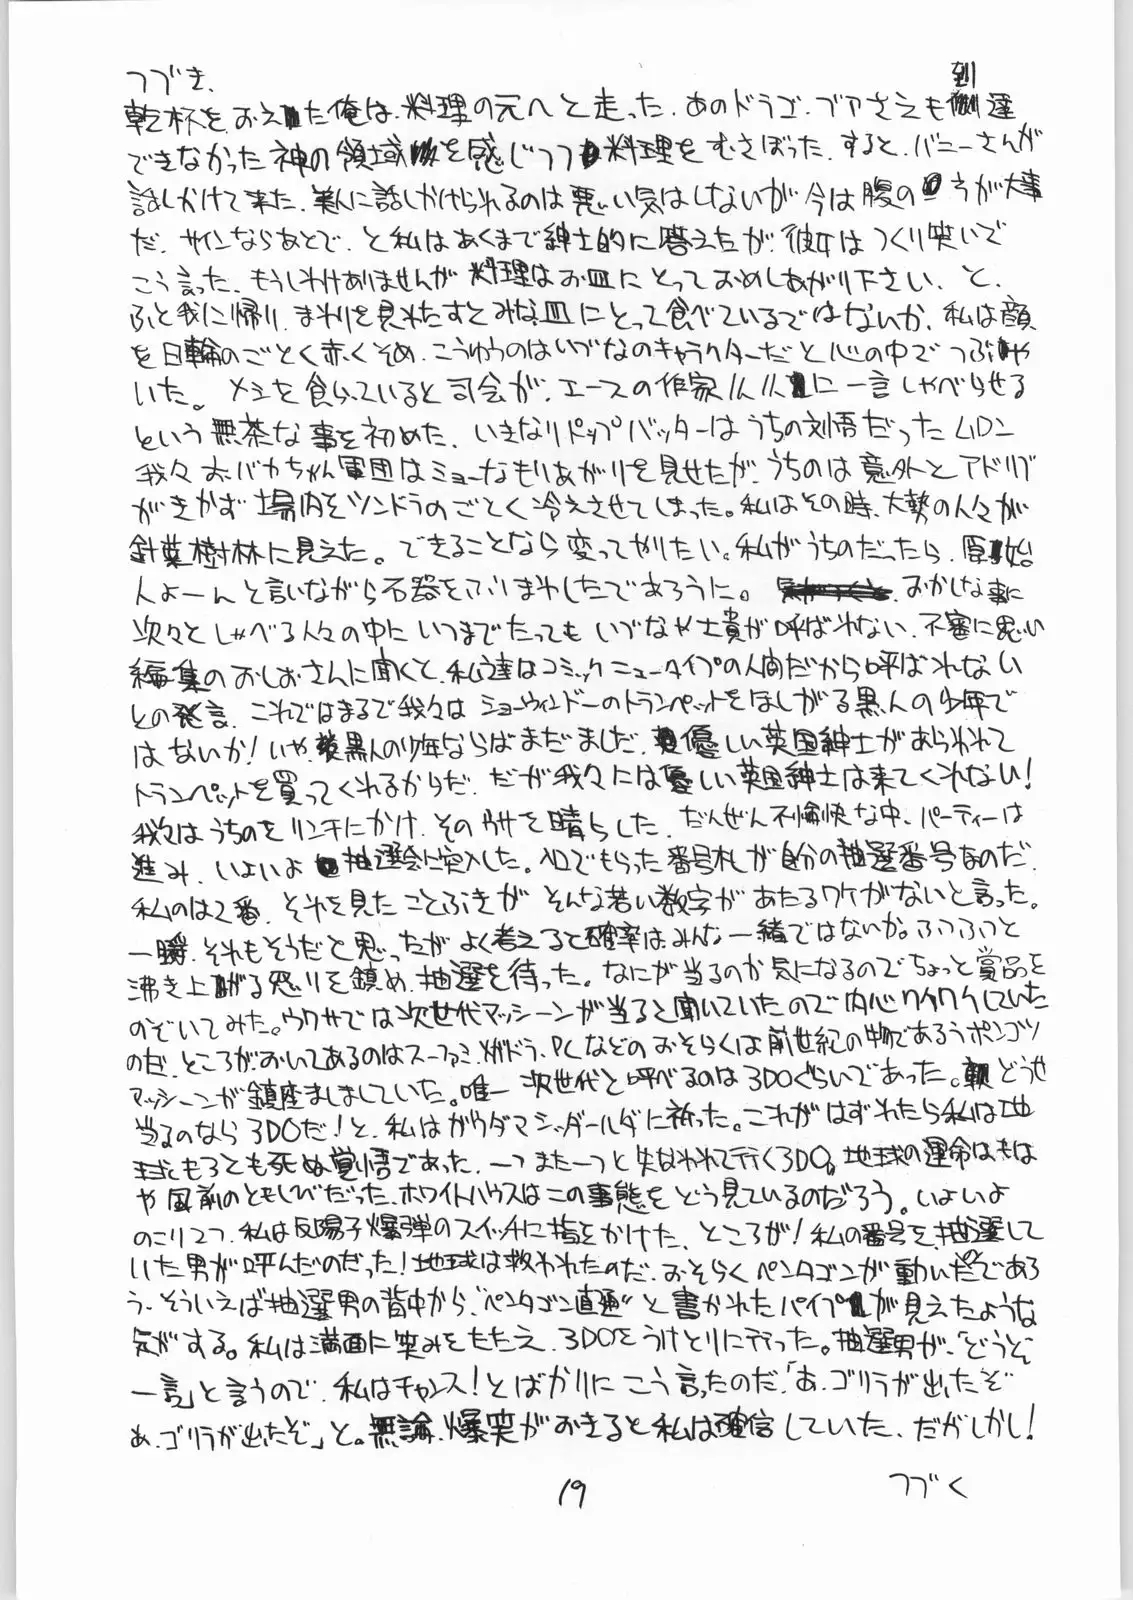 つづき、
乾杯を、おえた俺は、料理の元へと走った、あのドラゴ、ブアさえも到達
できなかった神の領域を感じつつ料理をむさぼった、すると、バニーさんが
話しかけて来た、美人に話しかけられるのは悪い気はしないが今は腹の方が大事
だ、サインならあとで、と私はあくまで紳士的に答えたが、彼女はつくり笑いで
こう言った、もうしわけありませんが料理はお皿にとっておめしあがり下さい、と、
ふと我に帰り、まわりを見わたすとみな皿にとって食べているではないか、私は顔
を日輪のごとく赤くそめ、こうゆうのはいづなのキャラクターだと心の中でつぶや
いた。メシを食らっていると司会が、エースの作家一人一人に一言しゃべらせる
という無茶な事を初めた、いきなりトップバッターはうちの刘悟だった
我々おバカちゃん軍団はミョーなもりあがりを見せたが、うちのは意外とアドリブ
がきかず場内をツンドラのごとく冷えさせてしまった。私はその時、大勢の人々が
針葉樹林に見えた。できることなら変ってやりたい。私がうちのだったら、原始
人よーんと言いながら石器をふりまわしたであろうに。おかしな事に
次々としゃべる人々の中にいつまでたってもいづなや士貴が呼ばれない、不審に思い
編集のおしおさんに聞くと、私達はコミックニュータイプの人間だから呼ばれない
との発言、これではまるで我々はショーウィンドーのトランペットをほしがる黒人の少年で
はないか!いや、黒人の少年ならばまだました、優しい英国紳士があらわれて
トランペットを買ってくれるからだ、だが我々には優しい英国紳士は来てくれない!
我々はうちのをリンチにかけ、そのウサを晴らした、だんぜん不愉快な中、パーティーは
進み、いよいよ抽選会に突入した。入口でもらった番号札が自分の抽選番号なのだ、
私のは2番、それを見たことぶきがそんな若い数字があたるワケがないと言った。
一瞬、それもそうだと思ったがよく考えると確率はみんな一緒ではないか。ふつふつと
沸き上がる怒りを鎮め、抽選を待った。なにが当るのか気になるのでちょっと賞品を
のぞいてみた。ウワサでは次世代マッシーンが当ると聞いていたので内心ワクワクしていた
のだ、ところがおいてあるのはスーファミ、メガドラ、PCなどのおそらくは前世紀の物であろうポンコツ
マッシーンが鎮座ましましていた。唯一次世代と呼べるのは3DOぐらいであった。どうせ
当るのなら3DOだ!と、私はガウダマ・シッダールダに祈った。これがはずれたら私は地
球もろとも死ぬ覚悟であった、一つまた一つと失なわれて行く3DO。地球の運命はもは
や風前のともしびだった、ホワイトハウスはこの事態をどう見ているのだろう。いよいよ
のこり2つ、私は反陽子爆弾のスイッチに指をかけた、ところが!私の番号を、抽選して
いた男が呼んだのだった!地球は救われたのだ、おそらくペンタゴンが動いたのであろ
う、そういえば抽選男の背中から、"ペンタゴン直通"と書かれたパイプが見えたような
気がする。私は満面に笑みをたたえ、3DOをうけとりに行った。抽選男が、「どうぞ
一言」と言うので、私はチャンス!とばかりにこう言ったのだ、「あ、ゴリラが出たぞ
あ、ゴリラが出たぞ」と。無論、爆笑がおきると私は確信していた、だがしかし!
つづく
19